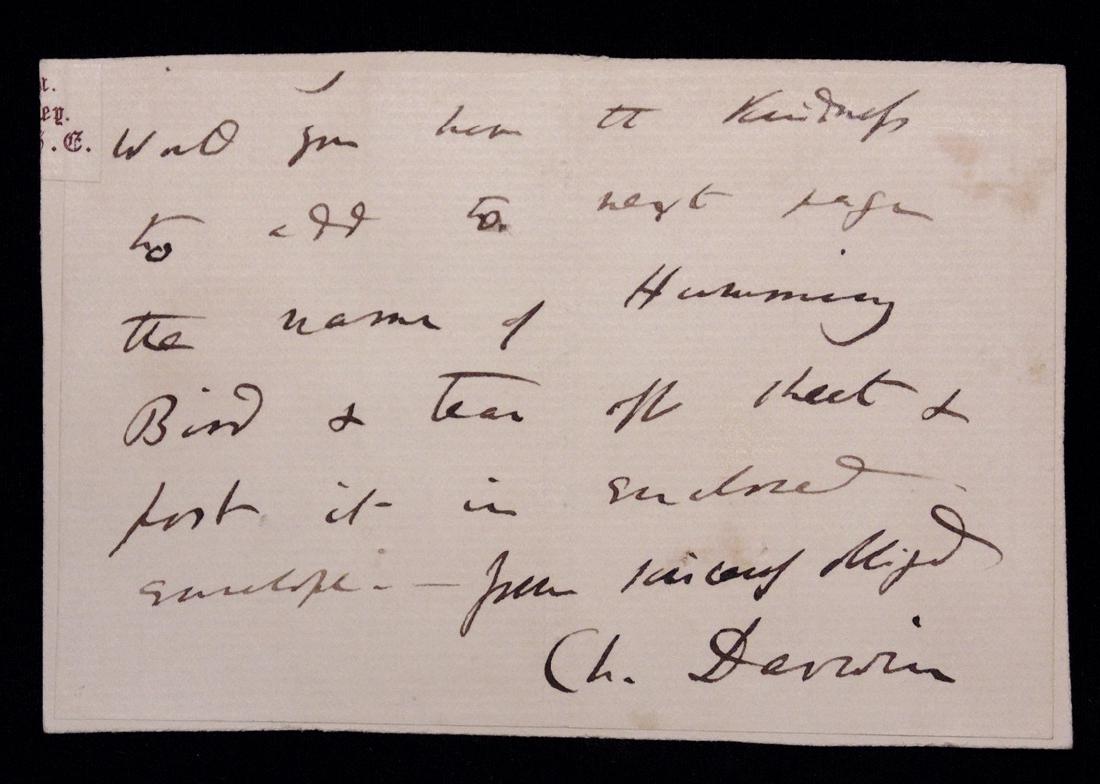 r.
ey.
S.E.
Would you have the kindness
to add to next page
the name of Humming
Bird & tear off sheet & 
post it in enclosed
envelope. — Yours sincerely obliged
Ch. Darwin